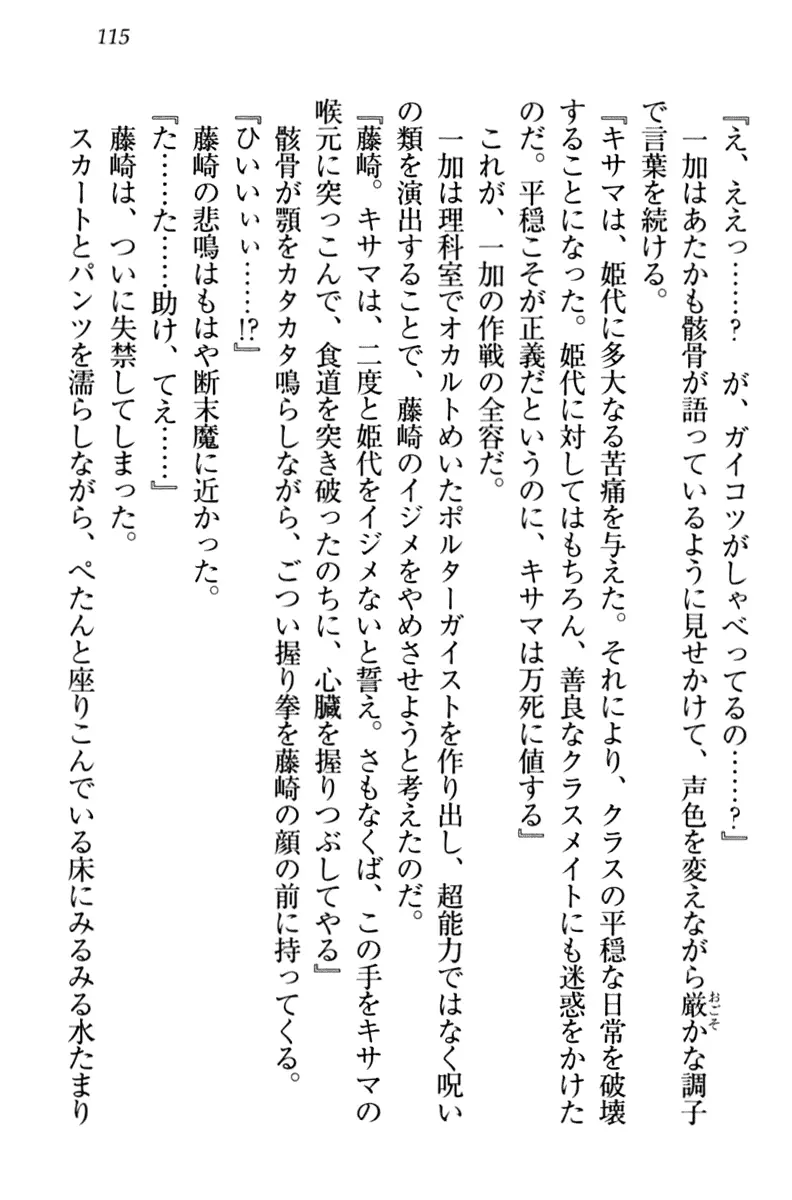 115
『え、ええっ……？　が、ガイコツがしゃべってるの……？』
　一加はあたかも骸骨が語っているように見せかけて、声色を変えながら厳かな調子
おごそ
で言葉を続ける。
『キサマは、姫代に多大なる苦痛を与えた。それにより、クラスの平穏な日常を破壊
することになった。姫代に対してはもちろん、善良なクラスメイトにも迷惑をかけた
のだ。平穏こそが正義だというのに、キサマは万死に値する』
　これが、一加の作戦の全容だ。
　一加は理科室でオカルトめいたポルターガイストを作り出し、超能力ではなく呪い
の類を演出することで、藤崎のイジメをやめさせようと考えたのだ。
『藤崎。キサマは、二度と姫代をイジメないと誓え。さもなくば、この手をキサマの
喉元に突っこんで、食道を突き破ったのちに、心臓を握りつぶしてやる』
　骸骨が顎をカタカタ鳴らしながら、ごつい握り拳を藤崎の顔の前に持ってくる。
『ひいいぃぃ……!?』
　藤崎の悲鳴はもはや断末魔に近かった。
『た……た……助け、てえ……』
　藤崎は、ついに失禁してしまった。
　スカートとパンツを濡らしながら、ぺたんと座りこんでいる床にみるみる水たまり